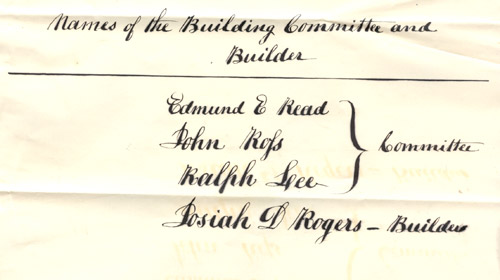 Names of the Building Committee and
Builder
Edmund E Read
John Roſs
Ralph Lee
} Committee
Josiah D Rogers – Builder